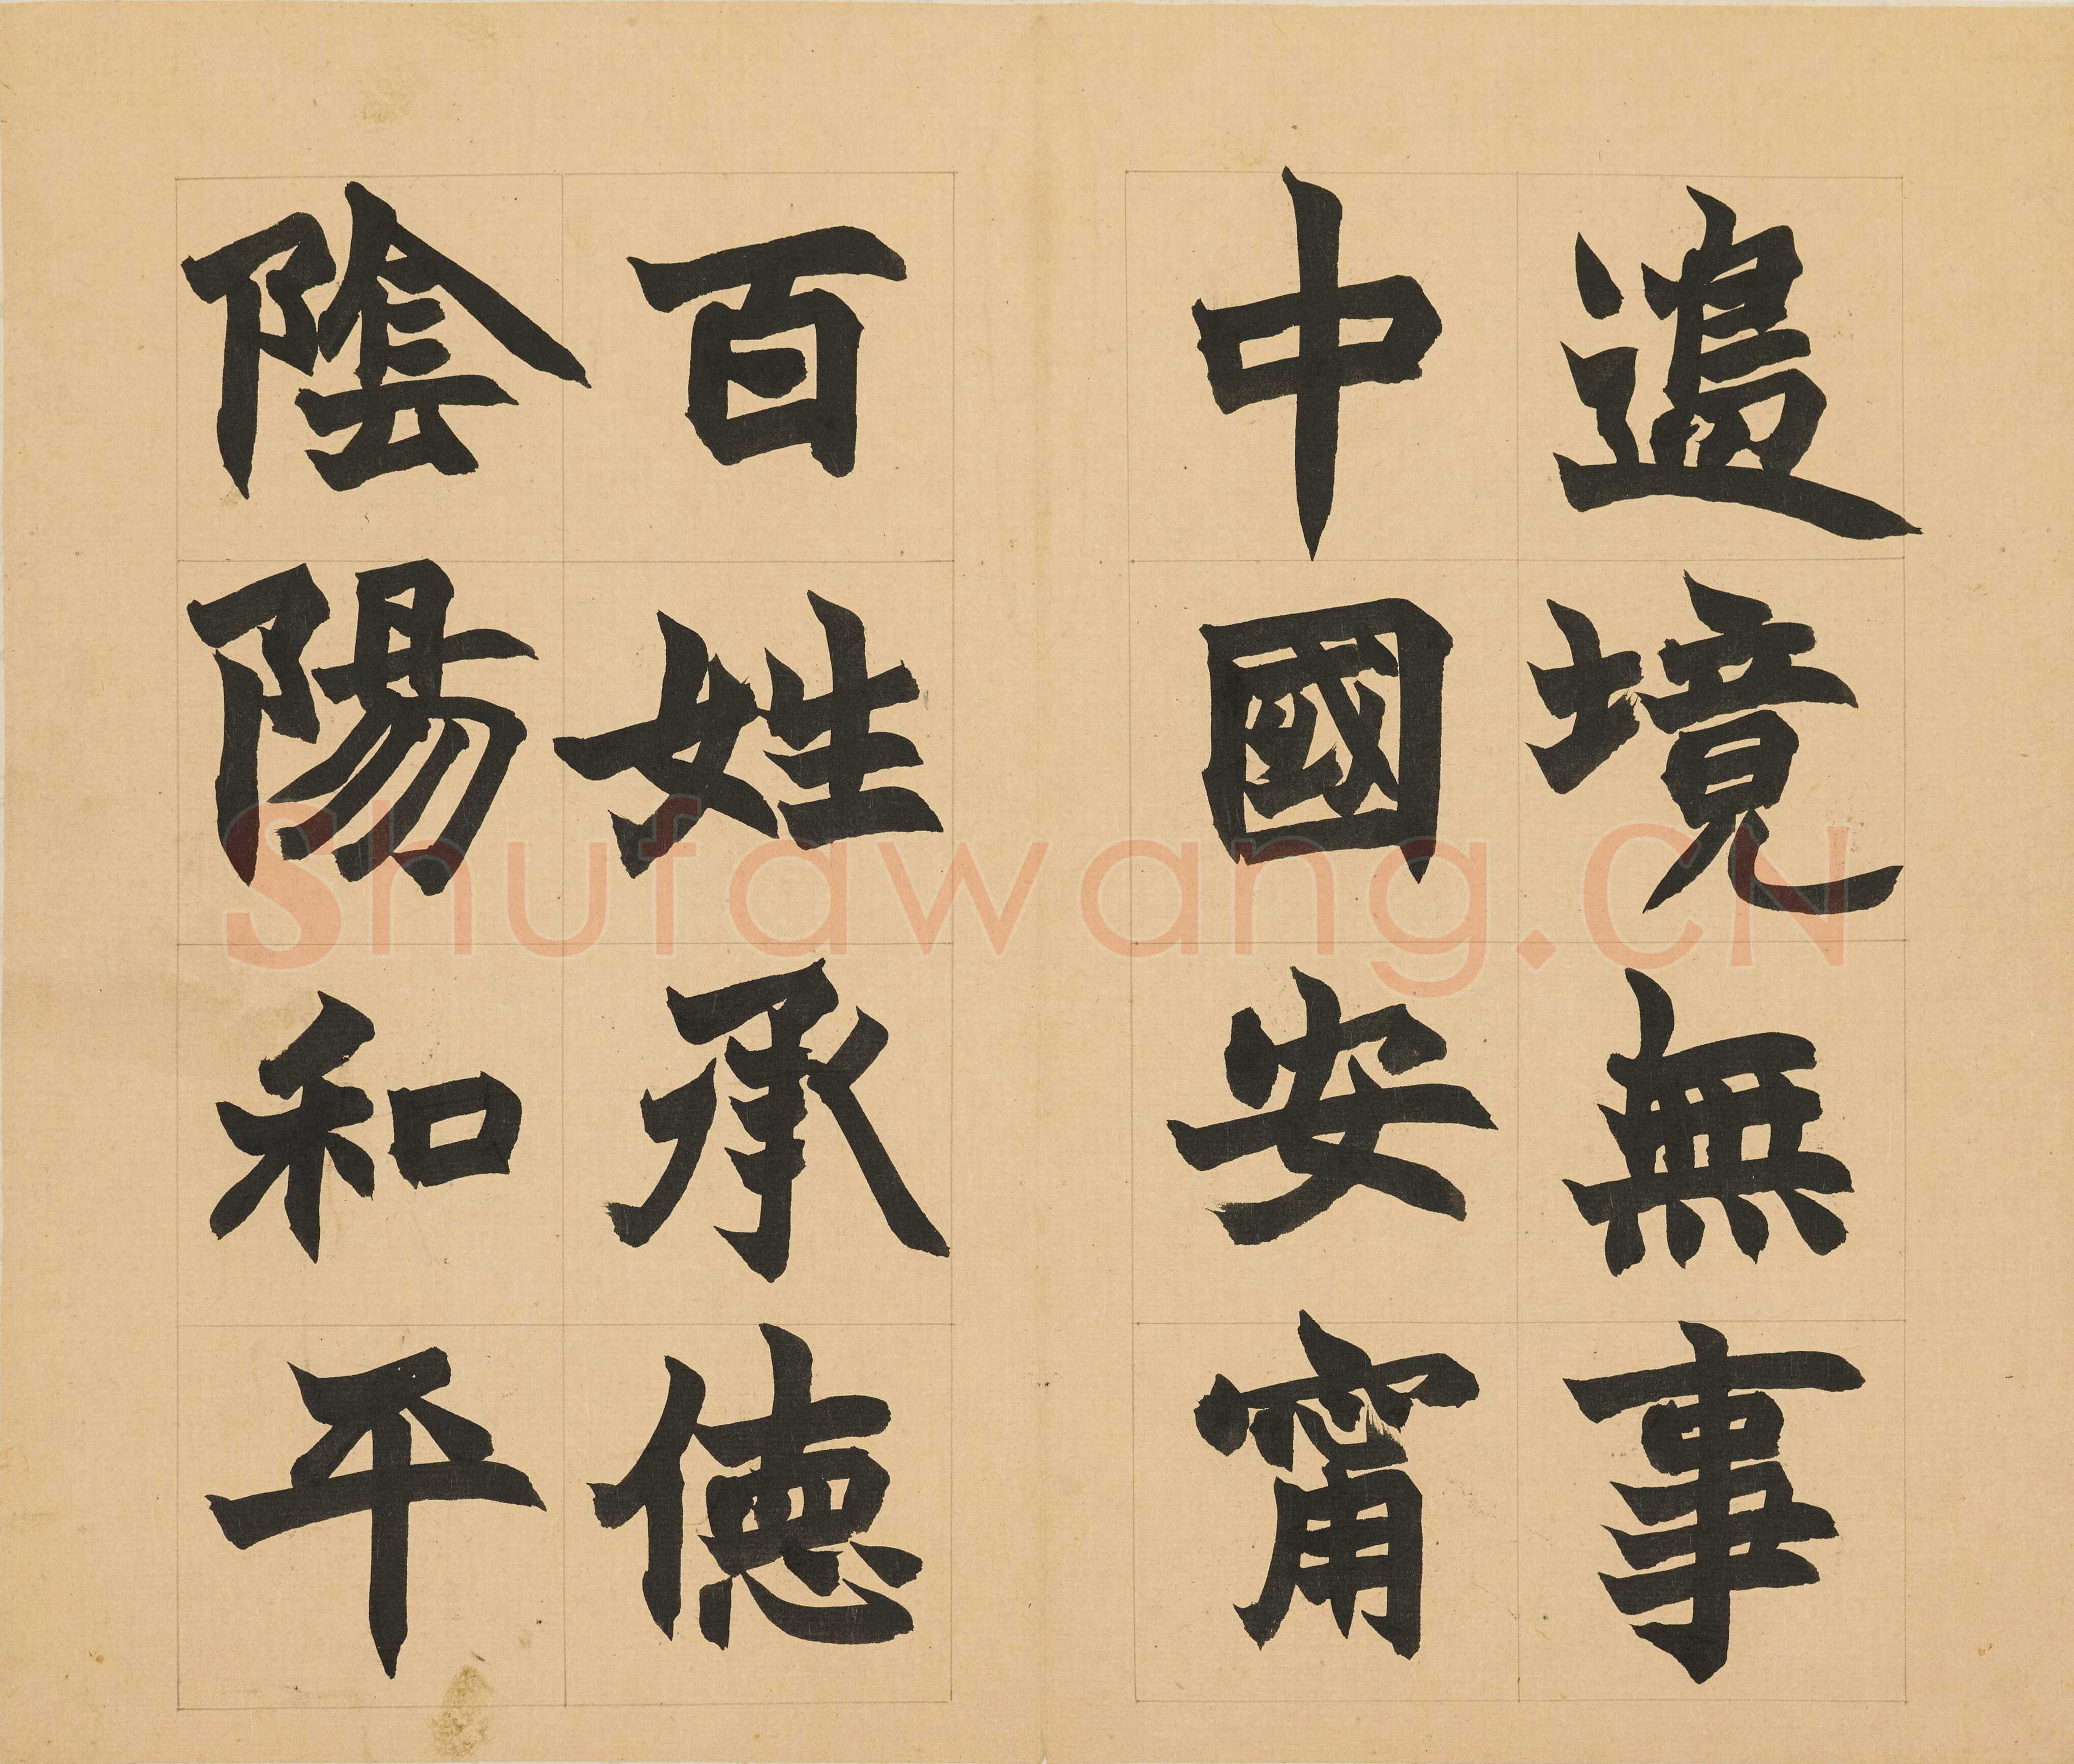 邉境無事
中國安甯
百姓承徳
陰陽和平
Shufawang.CN